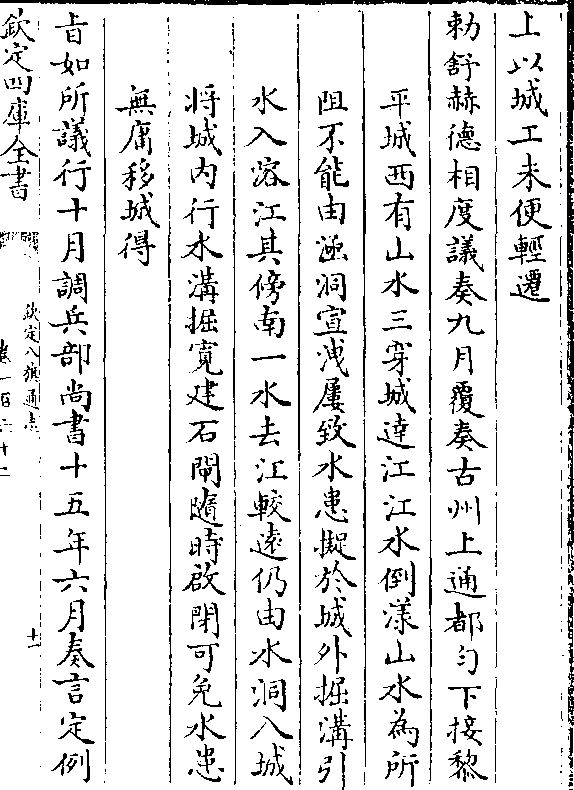 上以城工未便輕遷
勅舒赫德相度議奏九月覆奏古州上通都勻下接黎
平城西有山水三穿城達江江水倒漾山水為所
阻不能由涵洞宣洩屢致水患擬於城外掘溝引
水入溶江其傍南一水去江較遠仍由水洞入城
將城内行水溝掘寛建石閘隨時啟閉可免水患
無庸移城得
㫖如所議行十月調兵部尚書十五年六月奏言定例
欽定四庫全書
欽定八旗通志
十一